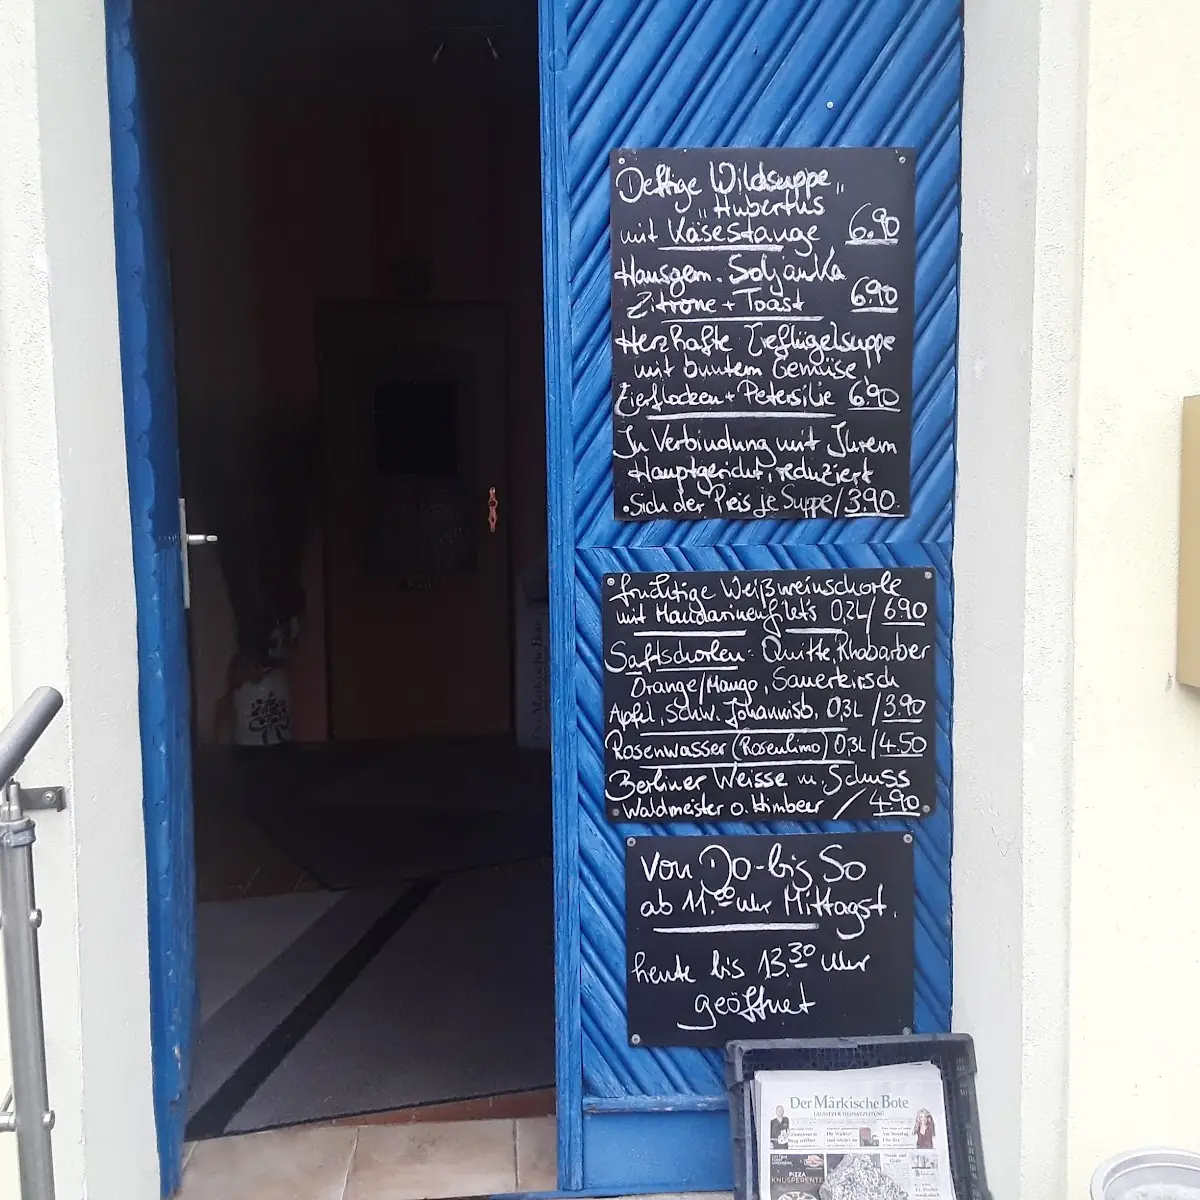 Deftige Wildsuppe
"Hubertus"
mit Käsestange 6.90
Hausgem. Soljanka
Zitrone + Toast 6.90
Herzhafte Geflügelsuppe
mit buntem Gemüse,
Eierflocken + Petersilie 6.90
In Verbindung mit Ihrem
Hauptgericht, reduziert
Sich der Preis je Suppe/3.90.
fruchtige Weißweinschorle
mit Mandarinenfilet's 0,2L/6.90
Saftschorlen: Quitte, Rhabarber
Orange/Mango, Sauerkirsch
Apfel, Schw. Johannisb. 0,3L/3.90
Rosenwasser (Rosenlimo) 0,3L/4.50
Berliner Weisse m. Schuss
Waldmeister o. Himbeer /4.90
Von Do-bis So
ab 11.00 Uhr Mittagst.
heute bis 13.30 Uhr
geöffnet
Der Märkische Bote
LAUSITZER HEIMATZEITUNG
PIZZA
KNUSPERENTE